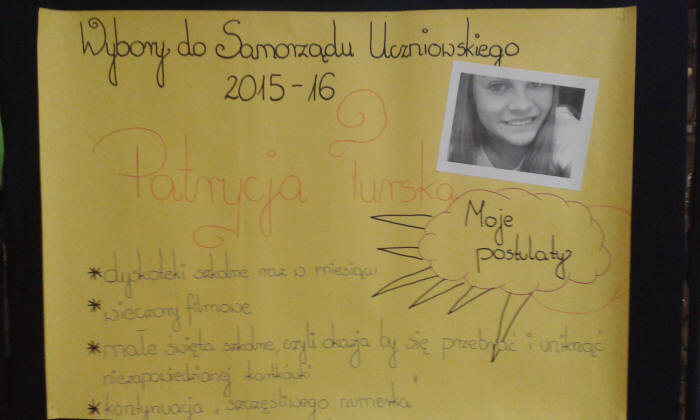 Wybory do Samorządu Uczniowskiego
2015-16
Patrycja Turska
Moje
postulaty
* dyskoteki szkolne raz w miesiącu
* wieczory filmowe
* małe święta szkolne, czyli okazja by się przebrać i uniknąć
niezapowiedzianej kartkówki
* kontynuacja "szczęśliwego numerka"